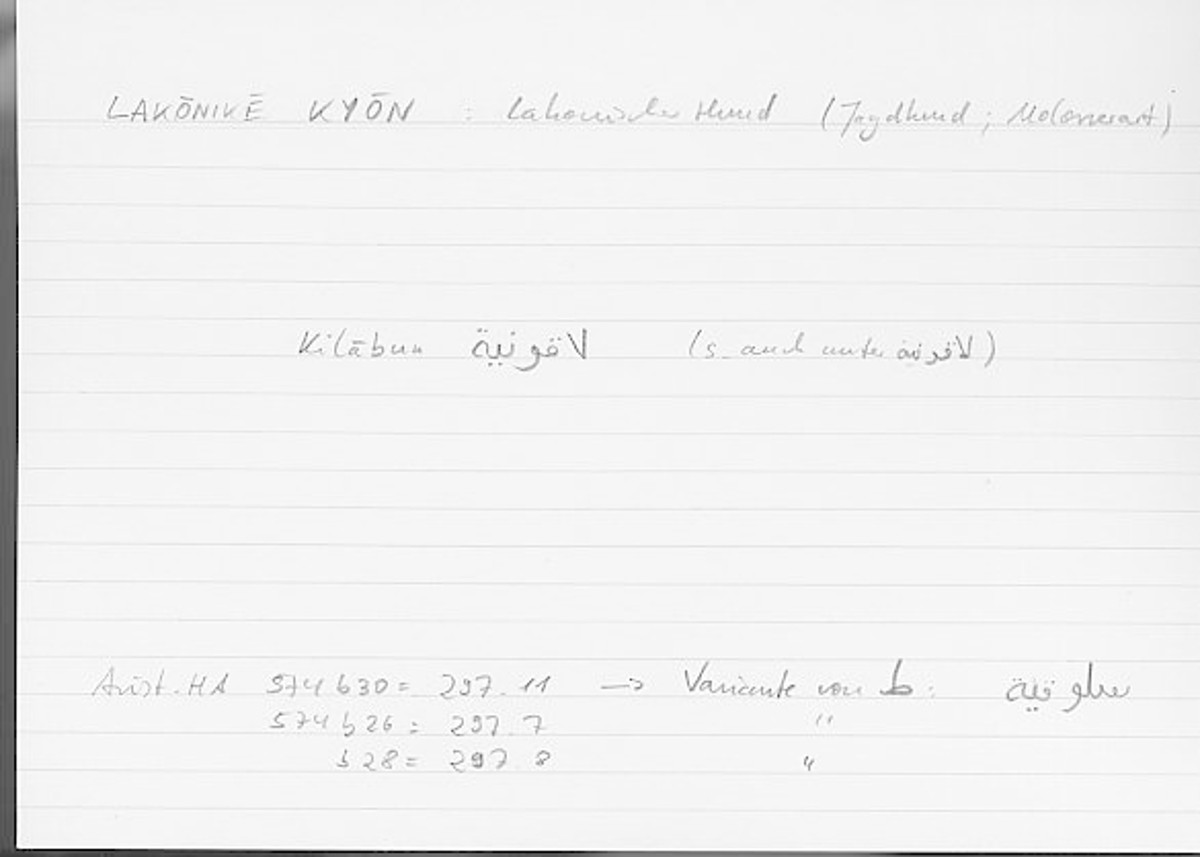 LAKŌNIKĒ KYŌN : lakonischer Hund (Jagdhund; Molosserart)
Kilābun لاقونية (s. auch unter لاقونية)
Arist. HA 574 b30 = 297. 11 → Variante von ط : سلوقية
574 b 26 = 297. 7 "
b 28 = 297 8 "